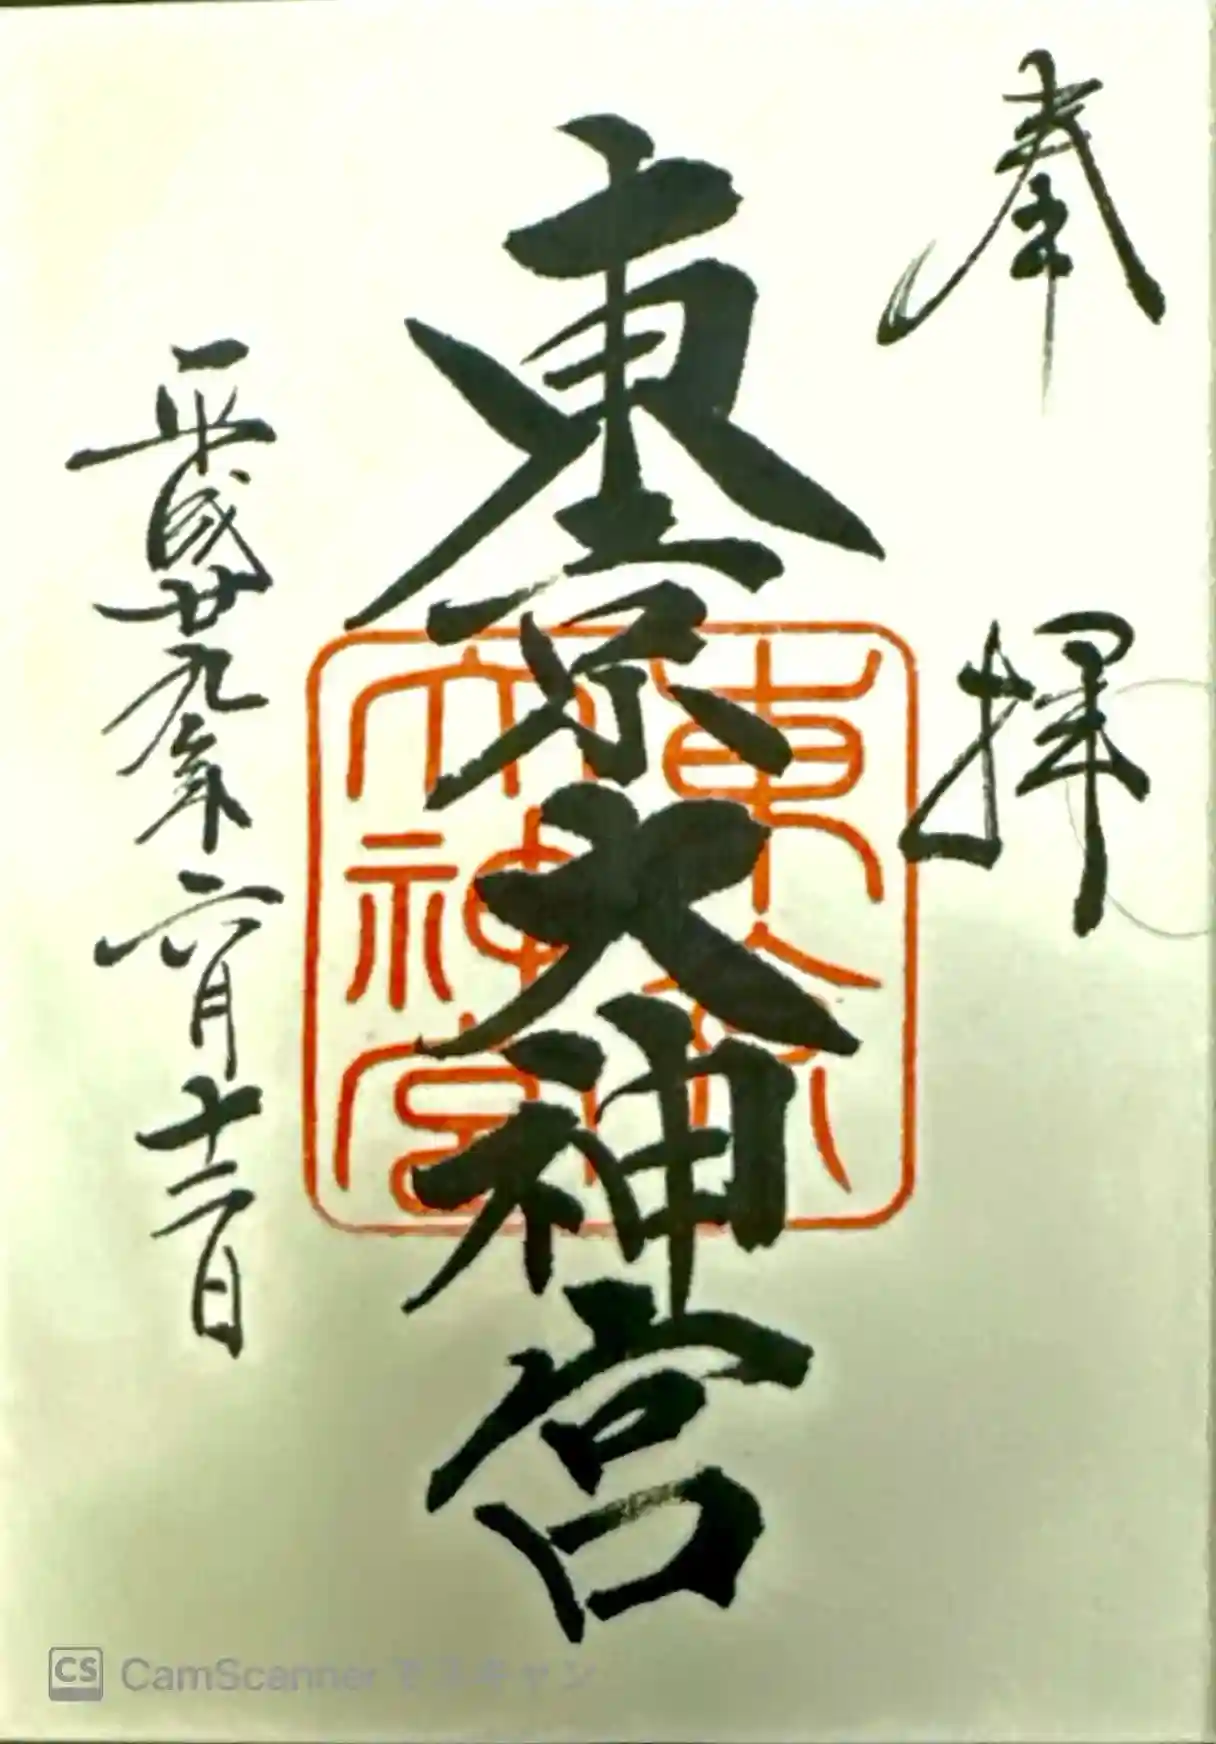 奉拝
東京大神宮
東京
大神宮
平成廿九年六月十二日
CS CamScanner でスキャン